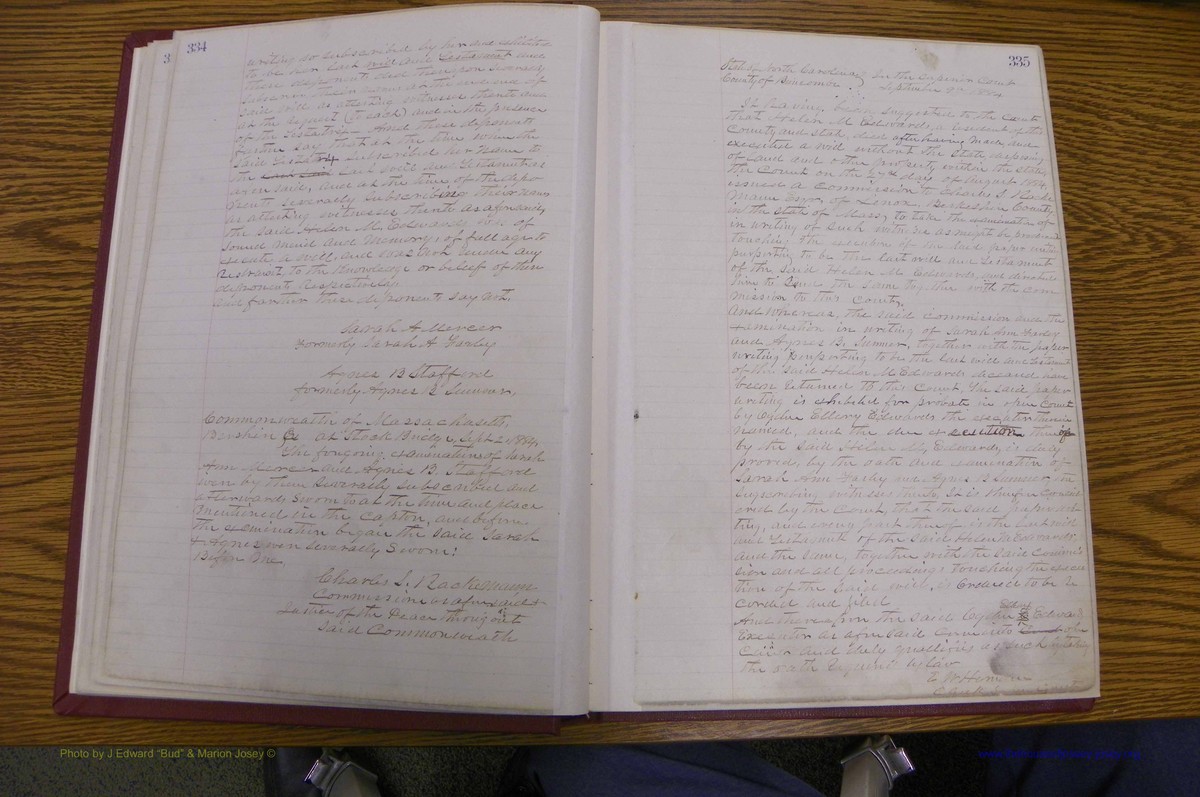 334
writing so subscribed by her and exhibited
to be her last will and testament and
these deponents did thereupon severally
subscribe their names at the end of
said will as attending witnesses thereto and
at the request (to each) and in the presence
of the testatrix. And these deponents
further say that at the time when the
said testatrix subscribed her name to
the last will and testament as
aforesaid, and at the time of the depo
nents severally subscribing their names
as attesting witnesses thereto as aforesaid,
the said Helen M. Edwards was of
sound mind and memory, of full age to
execute a will, and was not under any
restraint, to the knowledge or belief of these
deponents respectively
and further these deponents say not.
Sarah A Mercer
formerly Sarah A Farley
Agnes B Stafford
formerly Agnes B Sumner,
Commonwealth of Massachusetts,
Berkshire Co at Stock Bridge, Sept 2 1884
The foregoing examinations of Sarah
Ann Mercer and Agnes B. Stafford
were by them severally subscribed and
afterwards sworn to at the time and place
mentioned in the Caption, and before
the examination began the said Sarah
& Agnes were severally sworn:
Before me,
Charles S. Rackemann
Commissioner as aforesaid &
Justice of the Peace throughout
said Commonwealth
335
State of North Carolina In the Superior Court
County of Buncombe September 1884
It having been suggested to the Court
that Helen M Edwards, a resident of this
County and State, died after having made and
executed a will without the State disposing
of land and other property within the State,
the Court on the day of August 1884,
issued a Commission to Charles S. Racke
mann Esqr, of Lenox, Berkshire County
in the State of Massts, to take the examination
in writing of such witnesses as might be produced
touching the execution of the said paper writing
purporting to be the last will and testament
of the said Helen M Edwards, and
the same together with the com
mission to this County,
And Whereas, the said Commission and the
examination in writing of Sarah Ann Farley
and Agnes B. Sumner, together with the paper
writing purporting to be the last will and testament
of the said Helen M Edwards deceased have
been returned to this Court, the said paper
writing is exhibited for probate in open Court
by Ogden Ellery Edwards the executor therein
named, and the due execution thereof
by the said Helen M. Edwards, is duly
proved, by the oath and examination of
Sarah Ann Farley and Agnes B Sumner the
subscribing witnesses thereto, It is therefore consid
ered by the Court, that the said paper wri
ting, and every part thereof is the last will
and testament of the said Helen M Edwards
and the same, together with the said Commis
sion and all proceedings touching the execu
tion of the said will, is ordered to be re
corded and filed
And thereupon the said Ogden Ellery Edwards
Executor as aforesaid
and duly qualifies as such by taking
the oath required by law
E W Herndon
Photo by J Edward “Bud” & Marion Josey ©